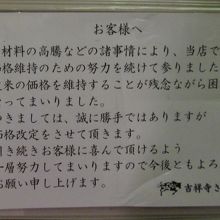 お客様へ
材料の高騰などの諸事情により、当店で
価格維持のための努力を続けて参りました
来の価格を維持することが残念ながら困
なってまいりました。
つきましては、誠に勝手ではありますが
価格改定をさせて頂きます。
引き続きお客様に喜んで頂けるよう
層努力してまいりますので今後ともよろ
お願い申し上げます。
吉祥寺さ